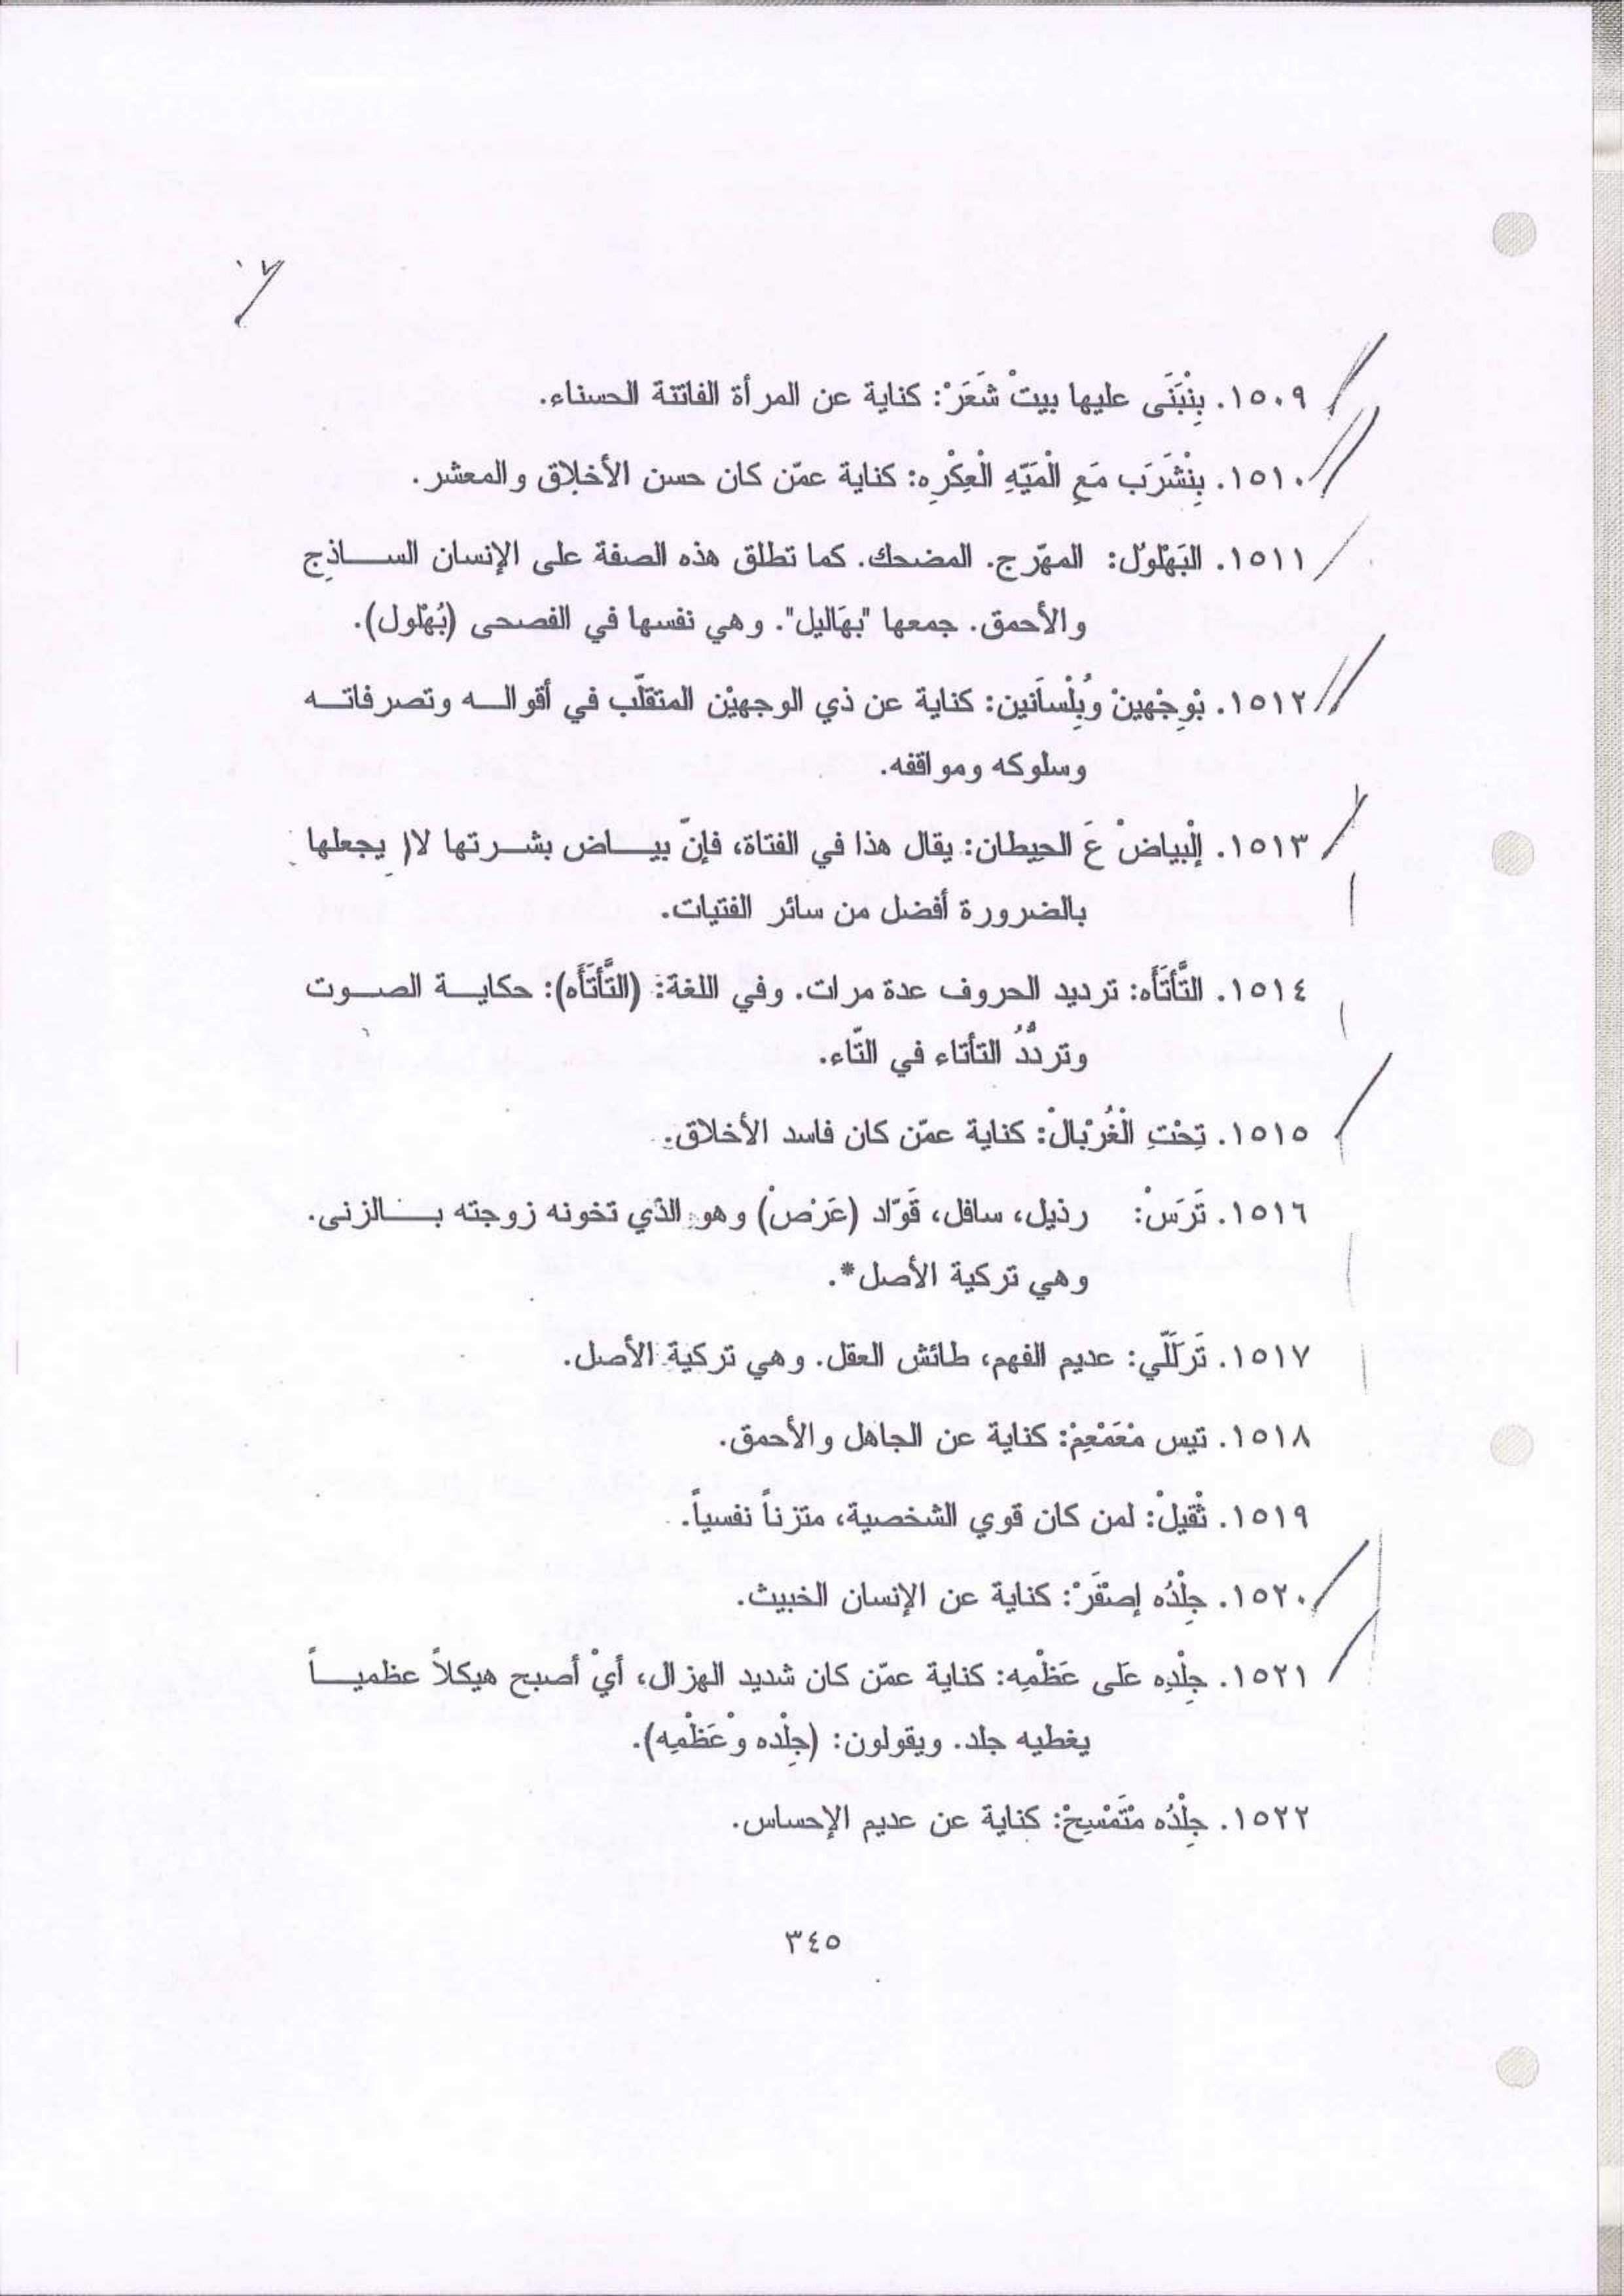 ١٥٠٩. بِنْبَنَى عليها بيتْ شَعَرْ: كناية عن المرأة الفاتنة الحسناء.
١٥١٠. بِنْشَرَب مَعِ الْمَيّهِ الْعِكْرِه: كناية عمّن كان حسن الأخلاق والمعشر.
١٥١١. البَهْلولْ: المهرّج. المضحك. كما تطلق هذه الصفة على الإنسان الساذج
والأحمق. جمعها "بهَاليل". وهي نفسها في الفصحى (بُهْلول).
١٥١٢. بْوِجْهينْ وُبِلْسَانين: كناية عن ذي الوجهيْن المتقلّب في أقواله وتصرفاته
وسلوكه ومواقفه.
١٥١٣. إلْبياضْ عَ الحيطان: يقال هذا في الفتاة، فإنّ بياض بشرتها لا يجعلها
بالضرورة أفضل من سائر الفتيات.
١٥١٤. التَّأتَأَه: ترديد الحروف عدة مرات. وفي اللغة: (التَّأتَأَه): حكاية الصوت
وتردّدُ التأتاء في التّاء.
١٥١٥. تِحْتِ الْغُرْبالْ: كناية عمّن كان فاسد الأخلاق.
١٥١٦. تَرَسْ: رذيل، سافل، قَوّاد (عَرْصْ) وهو الذي تخونه زوجته بالزنى.
وهي تركية الأصل*.
١٥١٧. تَرَلَلّي: عديم الفهم، طائش العقل. وهي تركية الأصل.
١٥١٨. تيس مْعَمْعِمْ: كناية عن الجاهل والأحمق.
١٥١٩. ثْقيلْ: لمن كان قوي الشخصية، متزناً نفسياً.
١٥٢٠. جِلْدُه إصْقَرْ: كناية عن الإنسان الخبيث.
١٥٢١. جِلْدِه عَلى عَظْمِه: كناية عمّن كان شديد الهزال، أيْ أصبح هيكلاً عظمياً
يغطيه جلد. ويقولون: (جِلْده وْعَظْمِه).
١٥٢٢. جِلْدُه مْتَمْسِحْ: كناية عن عديم الإحساس.
٣٤٥